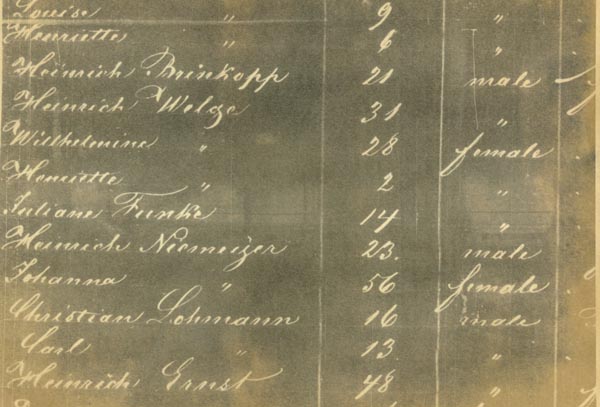 Louise " 9 "
Henriette " 6 "
Heinrich Brinkopp 21 male
Heinrich Welge 31 "
Wilhelmine " 28 female
Henriette " 2 "
Juliane Funke 14 "
Heinrich Niemeizer 23. male
Johanna " 56 female
Christian Lohmann 16 male
Carl " 13. "
Heinrich Ernst 48 "